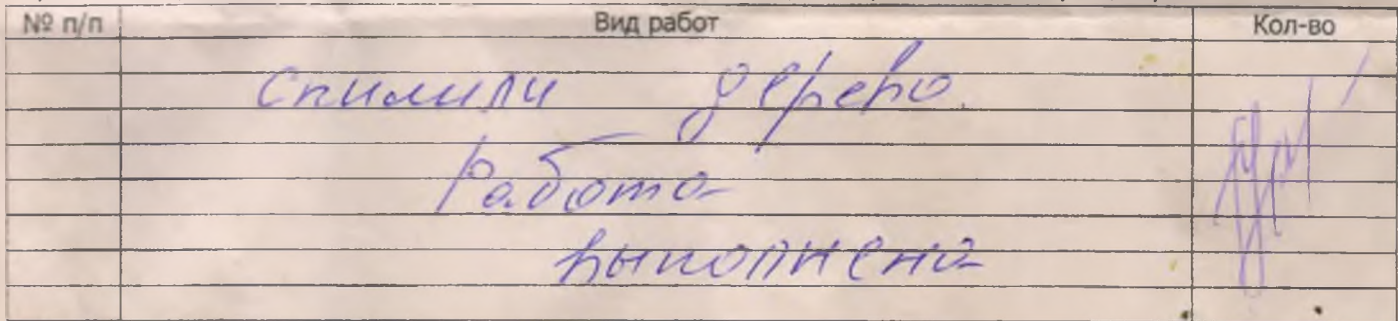 № п/п Вид работ Кол-во
Спилили дерево.
Работа
выполнена